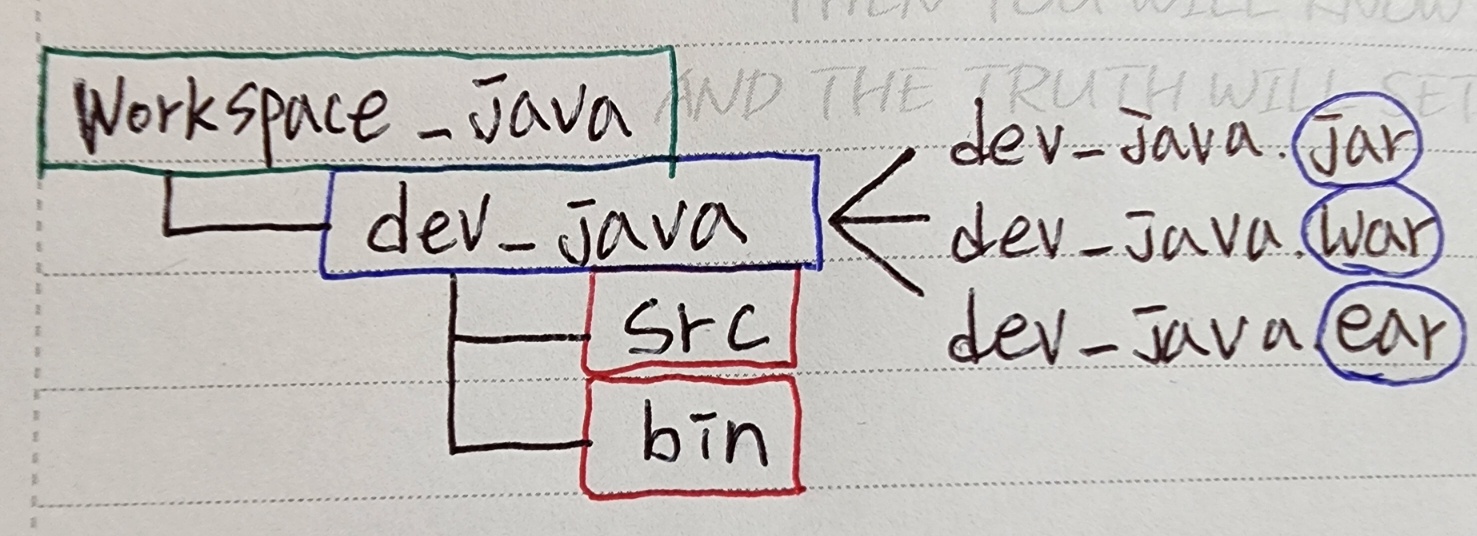 THEN YOU WILL KNOW
AND THE TRUTH WILL SET
Workspace_java
dev_java
src
bin
dev_java.jar
dev_java.war
dev_java.ear